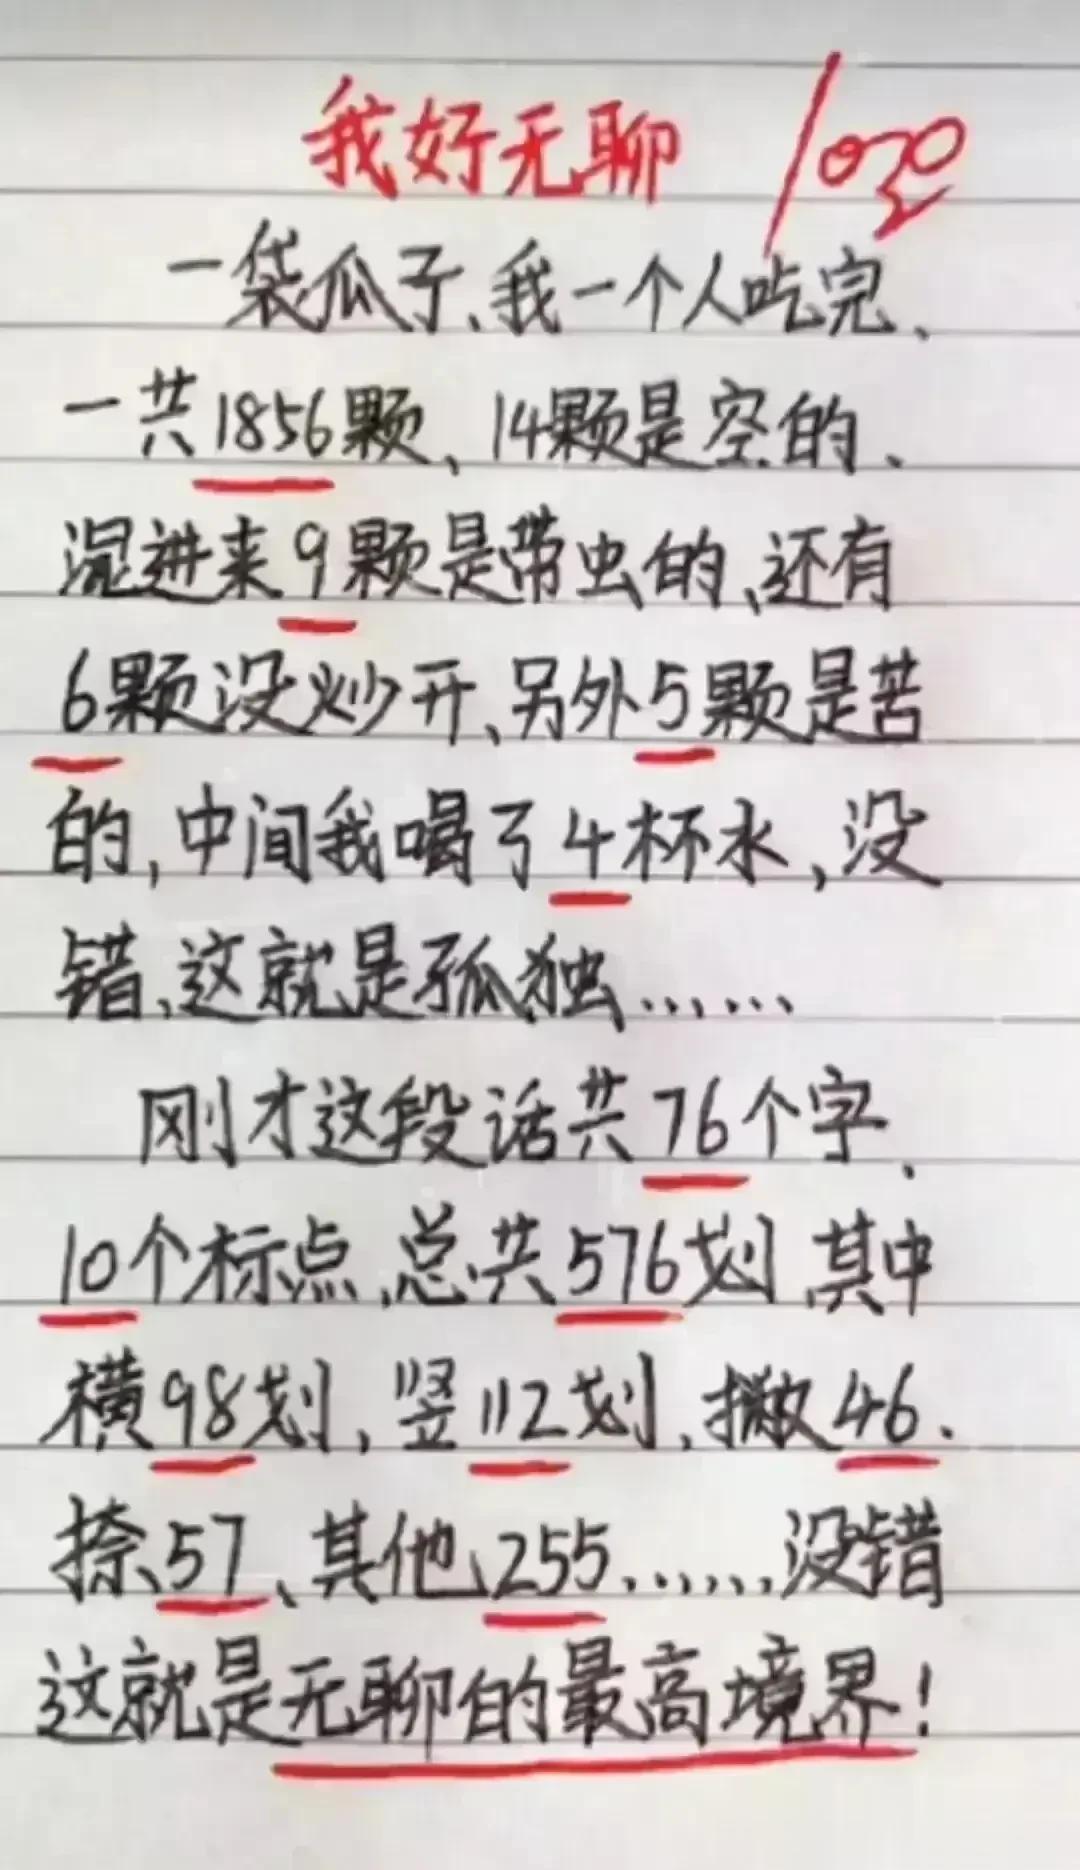 我好无聊
一袋瓜子、我一个人吃完、
一共1856颗、14颗是空的、
混进来9颗是带虫的、还有
6颗没炒开、另外5颗是苦
的,中间我喝了4杯水,没
错、这就是孤独......
刚才这段话共76个字、
10个标点,总共576划,其中
横98划,竖112划,撇46、
捺57、其他255......没错
这就是无聊的最高境界!